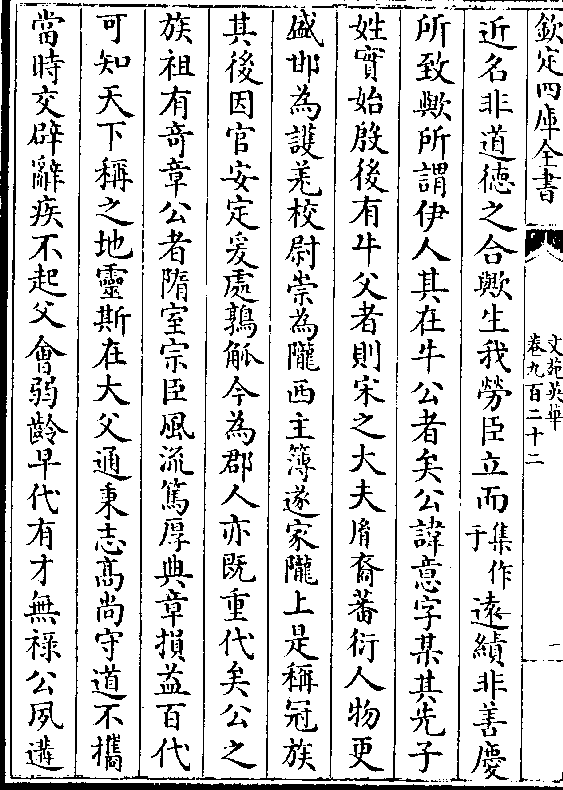 欽定四庫全書
文苑英華
卷九百二十二
二
近名非道德之合歟生我勞臣立而集作于遠績非善慶
所致歟所謂伊人其在牛公者矣公諱意字某其先子
姓實始殷後有牛父者則宋之大夫胤裔蕃衍人物更
盛邯為護羌校尉崇為隴西主簿遂家隴上是稱冠族
其後因官安定爰處鶉觚今為郡人亦既重代矣公之
族祖有奇章公者隋室宗臣風流篤厚典章損益百代
可知天下稱之地靈斯在大父通秉志高尚守道不攜
當時交辟辭疾不起父會弱齡早代有才無祿公夙遘